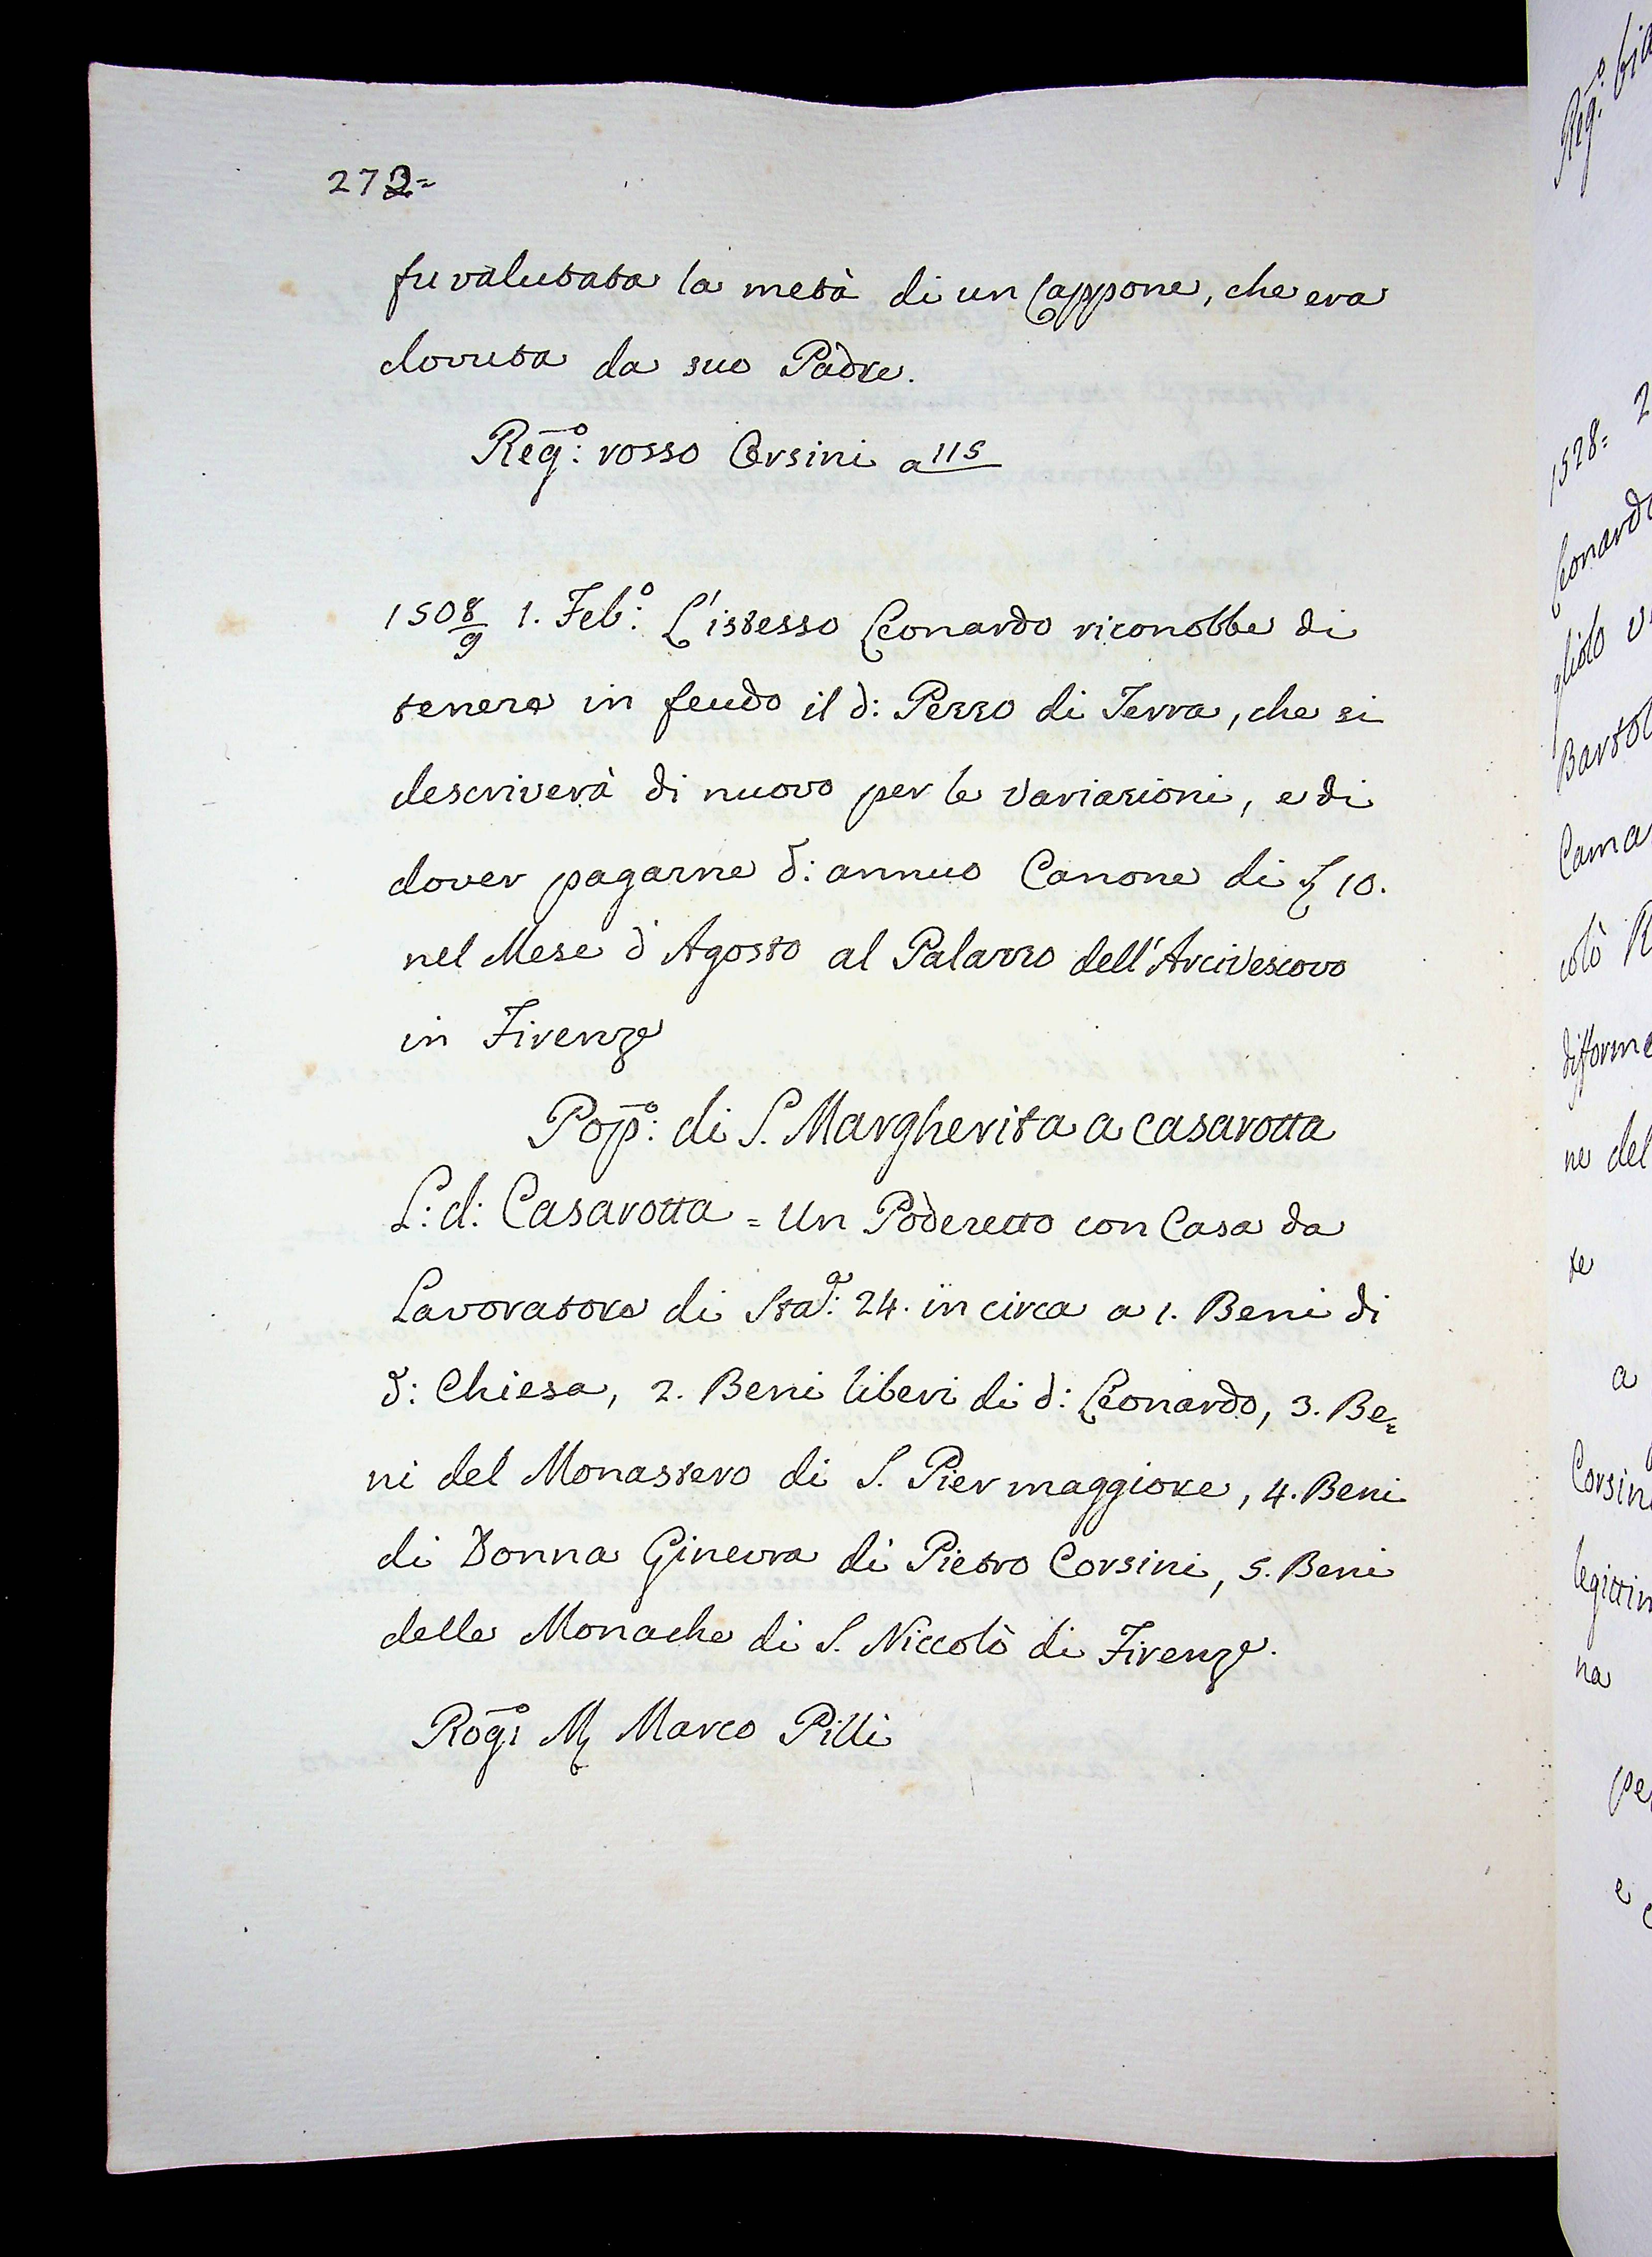 272=
fu valutata la metà di un Cappone, che era
dovuta da suo Padre.
Reg:º rosso Corsini a 115
1508/9 1. Feb:º L'istesso Leonardo riconobbe di
tenere in feudo il d: Pezzo di Terra, che si
descriverà di nuovo per le Variazioni, e di
dover pagarne d: annuo Canone di £ 10.
nel Mese d'Agosto al Palazzo dell'Arcivescovo
in Firenze
Pop:º di S. Margherita a casarotta
L: d: Casarotta = Un Poderetto con Casa da
Lavoratore di Sta:ª 24. in circa a 1. Beni di
d: Chiesa, 2. Beni liberi di d: Leonardo, 3. Be=
ni del Monastero di S. Pier maggiore, 4. Beni
di Donna Ginevra di Pietro Corsini, 5. Beni
delle Monache di S. Niccolò di Firenze.
Rog:º M Marco Pilli
Reg:º
1528= 2
Leonardo
gliolo
Bartol
Cama
colò R
difforme
ne del
te
a
Corsin
legittim
na
pe
e